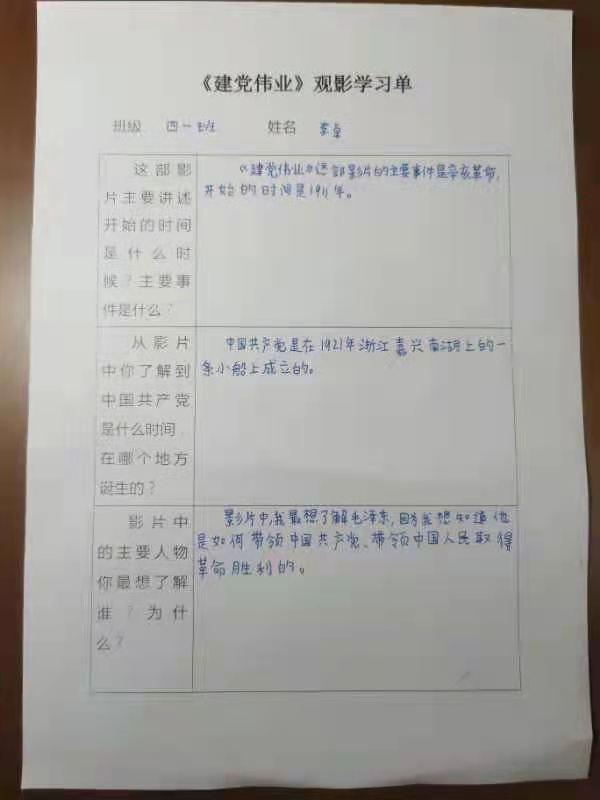 《建党伟业》观影学习单
班级 四一班 姓名
这部影
片主要讲述
开始的时间
是什么时
候？主要事
件是什么？
《建党伟业》这部影片的主要事件是辛亥革命，
开始的时间是1911年。
从影片
中你了解到
中国共产党
是什么时间
在哪个地方
诞生的？
中国共产党是在1921年浙江嘉兴南湖上的一
条小船上成立的。
影片中
的主要人物
你最想了解
谁？为什
么？
影片中，我最想了解毛泽东，因为我想知道他
是如何带领中国共产党、带领中国人民取得
革命胜利的。